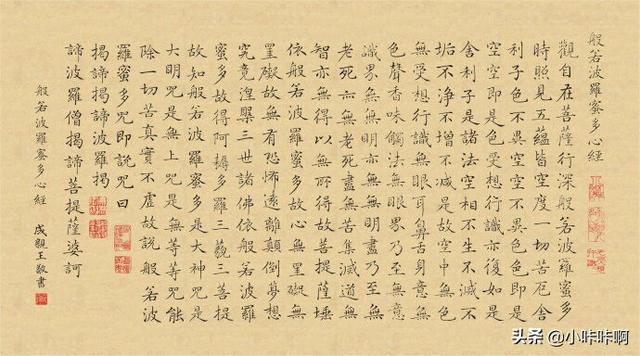 般若波羅蜜多心經
觀自在菩薩行深般若波羅蜜多
時照見五蘊皆空度一切苦厄舍
利子色不異空空不異色色即是
空空即是色受想行識亦復如是
舍利子是諸法空相不生不滅不
垢不淨不增不減是故空中無色
無受想行識無眼耳鼻舌身意無
色聲香味觸法無眼界乃至無意
識界無無明亦無無明盡乃至無
老死亦無老死盡無苦集滅道無
智亦無得以無所得故菩提薩埵
依般若波羅蜜多故心無罣礙無
罣礙故無有恐怖遠離顛倒夢想
究竟涅槃三世諸佛依般若波羅
蜜多故得阿耨多羅三藐三菩提
故知般若波羅蜜多是大神咒是
大明咒是無上咒是無等等咒能
除一切苦真實不虛故說般若波
羅蜜多咒即說咒曰
揭諦揭諦波羅揭
諦波羅僧揭諦菩提薩婆訶
般若波羅蜜多心經
成親王敬書
头条 @小咔咔啊